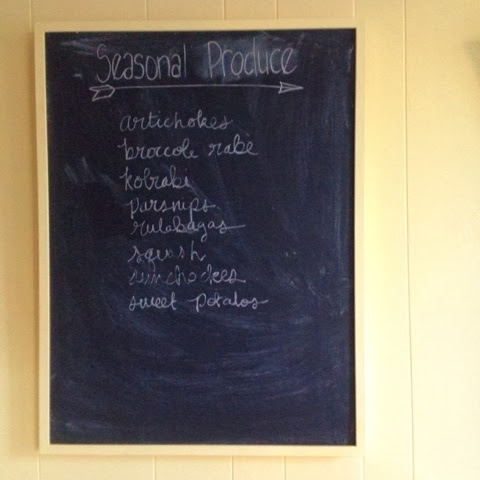 Seasonal Produce
artichokes
broccole rabe
kolrabi
parsnips
rutabagas
squash
sunchockes
sweet potatos